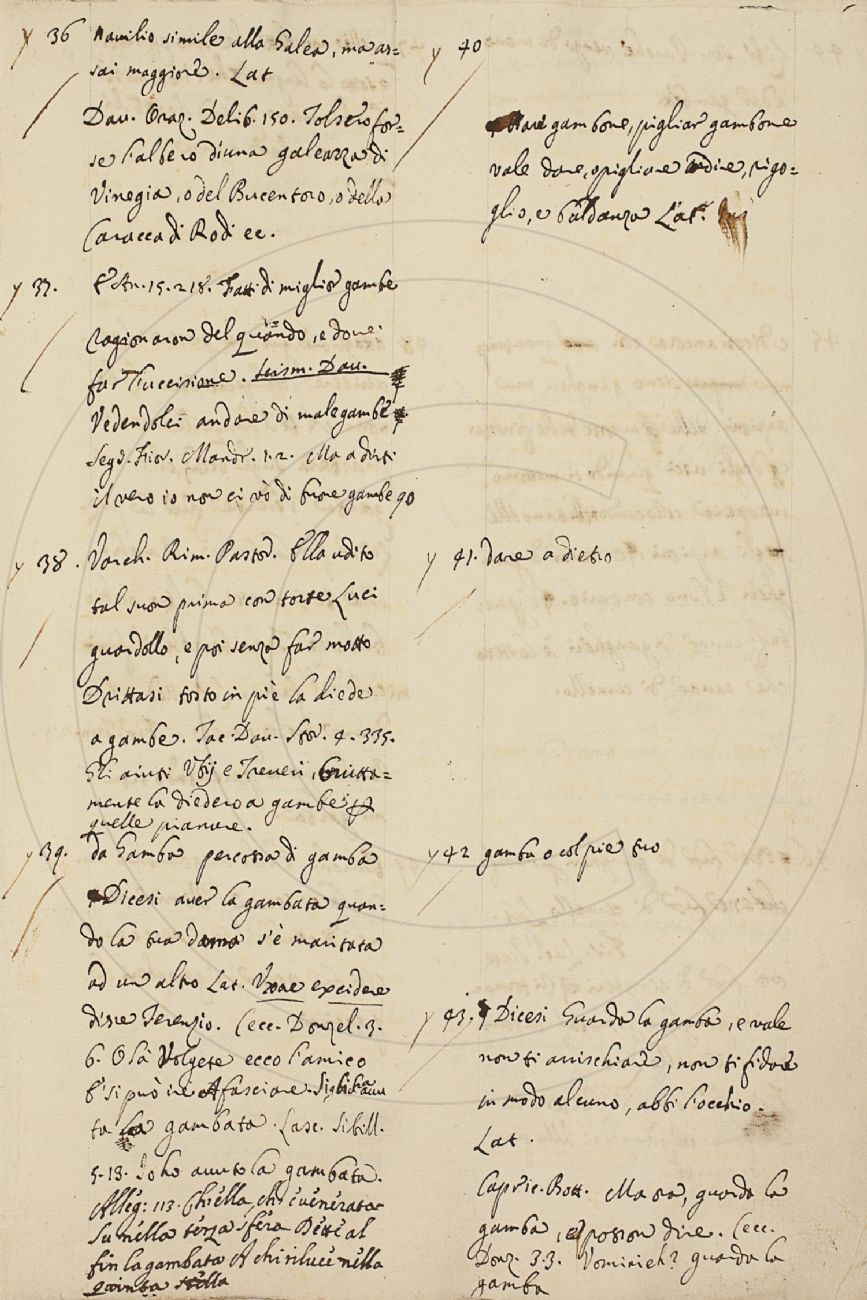 y 36 Navilio simile alla Galea, ma as=
sai maggiore. Lat
Dav. Oraz. Delib. 150. Tolsero for=
se l'albero d'una galeazza di
Vinegia, o del Bucentoro, o della
Caracca di Rodi ec.
y 37. E An. 15. 218. Fatti di miglior gambe
ragionaron del quando, e dove
far l'uccisione. Scism. Dav.
Vedendolei andare di male gambe
Segr. Fior. Mandr. 1. 2. Ma a dirti
il vero io non ci vò di buone gambe 90
y 38. Varch. Rim. Pastor. Ella udito
tal suon prima con torte Luci
guardollo, e poi senza far motto
Drittasi tosto in piè la diede
a gambe. Tac. Dav. Stor. 4. 335.
Gli aiuti Vbij e Treveri, brutta=
mente la diedero a gambe
quelle pianure.
y 39. da Gamba percossa di gamba
Dicesi aver la gambata quan=
do la sua dama s'è maritata
ad un altro Lat. Vxore excidere
disse Terenzio. Cecc. Donzel. 3.
6. Olà Volgete ecco l'amico
E si può ire A fasciare
ta la gambata. Lasc. Sibill.
5. 13. Io ho avuto la gambata.
Alleg: 113. Ch'ella, ch'è venerata
Su nella terza sfera Dette al
fin la gambata A chi riluce nella
quinta stella
y 40
Dare gambone, pigliar gambone
vale dare, o pigliare ardire, rigo=
glio, e baldanza Lat.
y 41. dare a dietro
y 42 gamba o col pie suo
y 43. Dicesi Guarda la gamba, e vale
non ti arrischiare, non ti fidare
in modo alcuno, abbi l'occhio.
Lat.
Capric. Bott. Ma sa, guarda la
gamba, e posson dire. Cecc.
Donz. 3. 3. guarda la
gamba